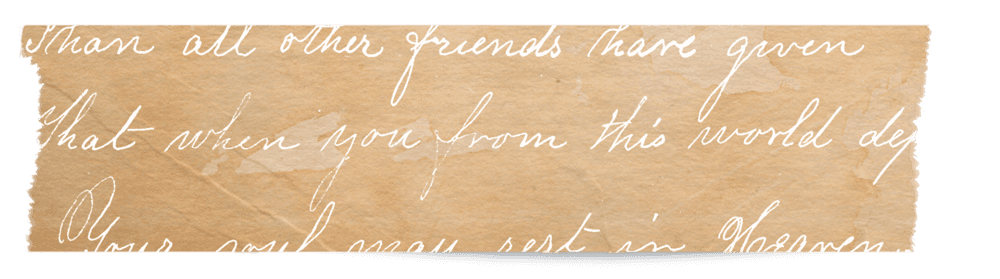 Than all other friends have given
That when you from this world dep
Your soul may rest in Heaven